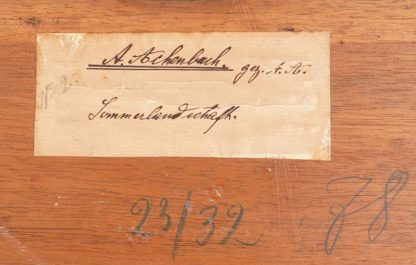 A. Achenbach. gez. A. A.
No 2.
Sommerlandschaft.
23/32 78